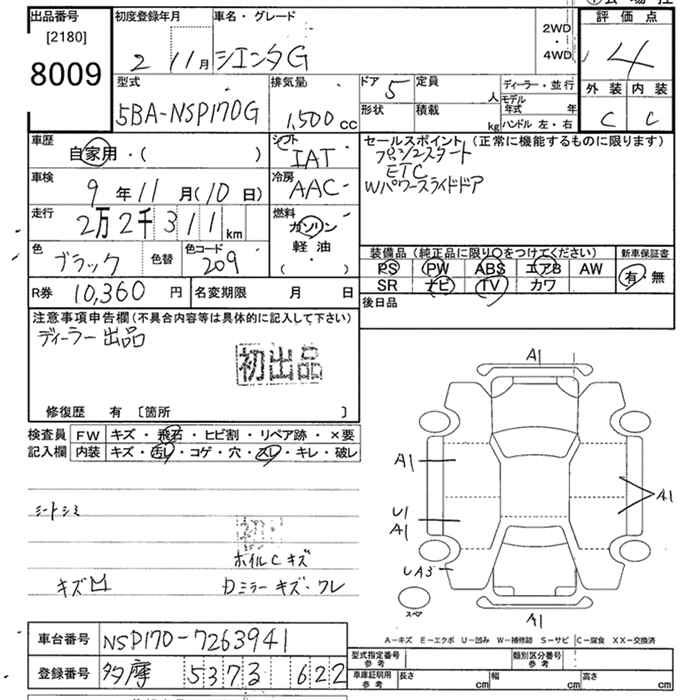 出品番号
[2180]
8009
初度登録年月
2 11月
車名・グレード
シエンタG
2WD
・
4WD
評価点
4
外装 内装
C C
型式
5BA-NSP170G
排気量
1,500 cc
ドア 5
定員
人
形状
積載
kg
ディーラー・並行
モデル年式 年
ハンドル 左・右
車歴
自家用・( )
シフト
IAT
車検
9年11月(10日)
冷房
AAC
走行
2万2千311km
燃料
ガソリン
軽油
( ・ )
色
ブラック
色替
色コード
209
R券 10,360円
名変期限 月 日
セールスポイント (正常に機能するものに限ります)
プッシュスタート
ETC
Wパワースライドドア
装備品(純正品に限り〇をつけてください)
PS PW ABS エアB AW
SR ナビ TV カワ
新車保証書
有・無
後日品
注意事項申告欄(不具合内容等は具体的に記入して下さい)
ディーラー出品
初出品
修復歴 有 〔箇所 〕
検査員
記入欄
FW キズ・飛石・ヒビ割・リペア跡・×要
内装 キズ・汚レ・コゲ・穴・スレ・キレ・破レ
シートシミ
ホイルCキズ
キズ
Dミラーキズ・ワレ
A1
A1
U1
A1
UA3
A1
A1
スペア
A-キズ E-エクボ U-凹み W-補修跡 S-サビ C-腐食 XX-交換済
車台番号 NSP170-7263941
登録番号 多摩 537る 622
型式指定番号
参考
類別区分番号
参考
車庫証明用
参考
長さ cm
幅 cm
高さ cm